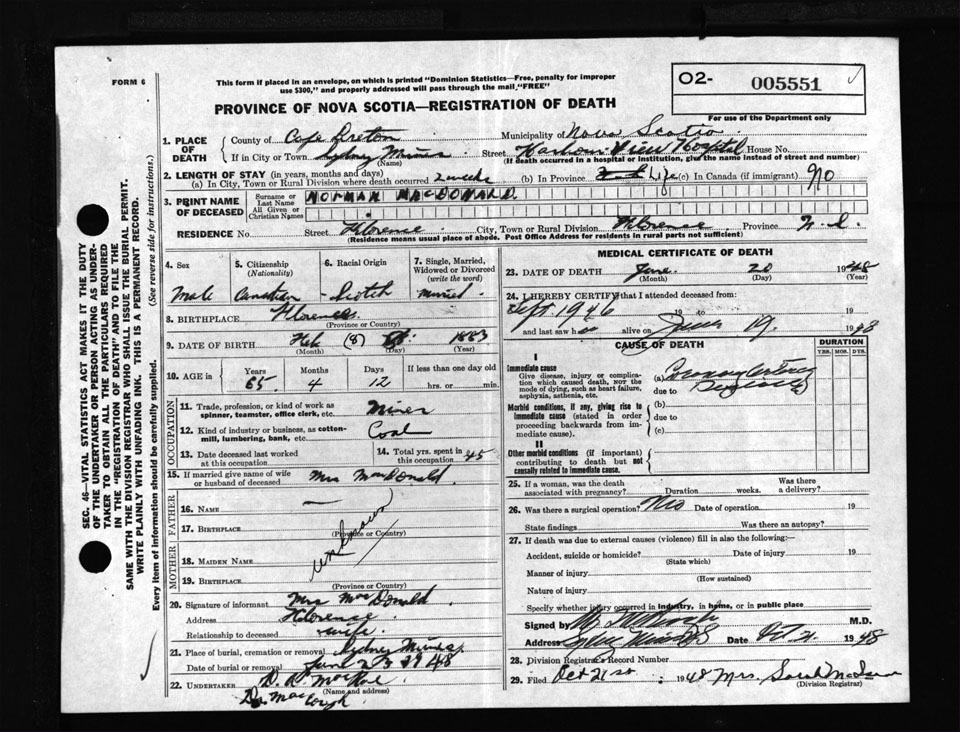 FORM 6
This form if placed in an envelope, on which is printed "Dominion Statistics—Free, penalty for improper
use $300," and properly addressed will pass through the mail "FREE"
O2- 005551
For use of the Department only
PROVINCE OF NOVA SCOTIA—REGISTRATION OF DEATH
1. PLACE OF DEATH County of Cape Breton Municipality of Nova Scotia
If in City or Town Sydney Mines (Name) Street Harbour View Hospital House No.
(If death occurred in a hospital or institution, give the name instead of street and number)
2. LENGTH OF STAY (in years, months and days)
(a) In City, Town or Rural Division where death occurred 2 weeks (b) In Province Life (c) In Canada (if immigrant) No
3. PRINT NAME OF DECEASED Surname or Last Name NORMAN MACDONALD.
All Given or Christian Names
RESIDENCE No. Street Florence City, Town or Rural Division Florence Province N.S.
(Residence means usual place of abode. Post Office Address for residents in rural parts not sufficient)
4. Sex Male
5. Citizenship (Nationality) Canadian
6. Racial Origin Scotch
7. Single, Married, Widowed or Divorced (write the word) Married
8. BIRTHPLACE Florence
(Province or Country)
9. DATE OF BIRTH Feb (8) 1883
(Month) (Day) (Year)
10. AGE in Years Months Days If less than one day old
65 4 12 hrs. or min.
OCCUPATION
11. Trade, profession, or kind of work as spinner, teamster, office clerk, etc. Miner
12. Kind of industry or business, as cotton-mill, lumbering, bank, etc. Coal
13. Date deceased last worked at this occupation
14. Total yrs. spent in this occupation 45
15. If married give name of wife or husband of deceased Mrs MacDonald
FATHER
16. Name
17. Birthplace
(Province or Country)
unknown
MOTHER
18. Maiden Name
19. Birthplace
(Province or Country)
20. Signature of informant Mrs MacDonald
Address Florence
Relationship to deceased wife.
21. Place of burial, cremation or removal Sydney Mines
Date of burial or removal June 23 1948
22. Undertaker D. R.
(Name and address)
MEDICAL CERTIFICATE OF DEATH
23. DATE OF DEATH June 20 1948
(Month) (Day) (Year)
24. I HEREBY CERTIFY that I attended deceased from:
Sept 1946 19 to 19
and last saw h alive on June 19. 1948
CAUSE OF DEATH
DURATION
YRS. MOS. DYS.
I
Immediate cause
Give disease, injury or complication which caused death, NOT the mode of dying, such as heart failure, asphyxia, asthenia, etc.
(a) Coronary Artery
due to
Morbid conditions, if any, giving rise to immediate cause (stated in order proceeding backwards from immediate cause).
(b)
due to
(c)
II
Other morbid conditions (if important) contributing to death but not causally related to immediate cause.
25. If a woman, was the death associated with pregnancy? Duration weeks. Was there a delivery?
26. Was there a surgical operation? No Date of operation 19
State findings Was there an autopsy?
27. If death was due to external causes (violence) fill in also the following:—
Accident, suicide or homicide? Date of injury 19
(State which)
Manner of injury
(How sustained)
Nature of injury
Specify whether injury occurred in industry, in home, or in public place
Signed by M.D.
Address Sydney Mines NS Date 1948
28. Division Registrar's Record Number
29. Filed Oct 21st : 1948 Mrs. Sarah
(Division Registrar)
SEC. 46—VITAL STATISTICS ACT MAKES IT THE DUTY
OF THE UNDERTAKER OR PERSON ACTING AS UNDER-
TAKER TO OBTAIN ALL THE PARTICULARS REQUIRED
IN THE "REGISTRATION OF DEATH" AND TO FILE THE
SAME WITH THE DIVISION REGISTRAR WHO SHALL ISSUE THE BURIAL PERMIT.
WRITE PLAINLY WITH UNFADING INK. THIS IS A PERMANENT RECORD.
Every item of Information should be carefully supplied. (See reverse side for instructions.)